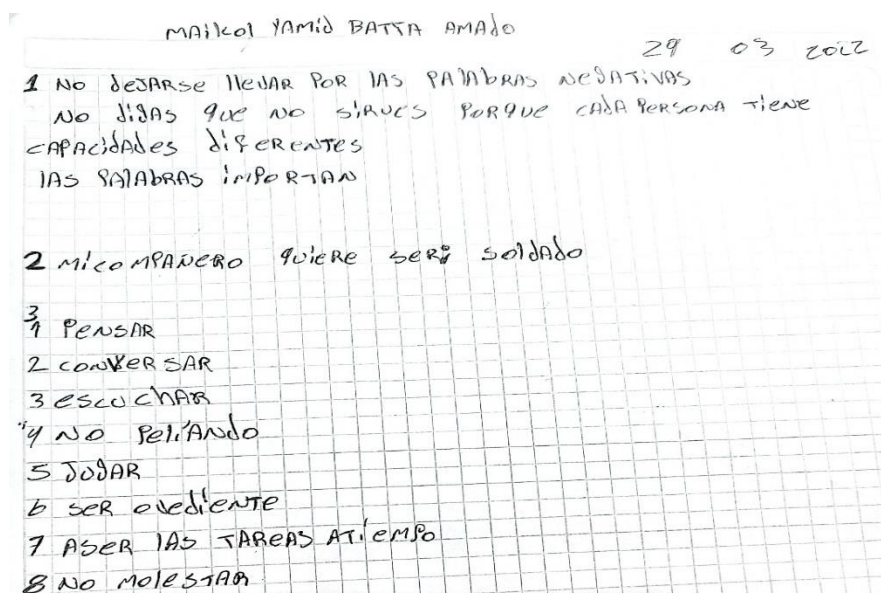 MAikol YAMid BATTA AMAdo
29 03 2022
1 NO deJARse llevAR POR lAS PAlAbRAS NegATivAS
NO digAS que NO siRves PoRque cAdA PeRsonA Tiene
CAPAcidAdes difeRenTes
lAS PAlAbRAS imPoRTAN
2 mi comPAÑeRO quieRe seR soldAdo
3
1 PeNSAR
2 conveRSAR
3 escuchAR
4 NO PeliANdo
5 JugAR
6 seR ovedienTe
7 ASeR lAS TAReAS ATiemPo
8 NO molesTAR